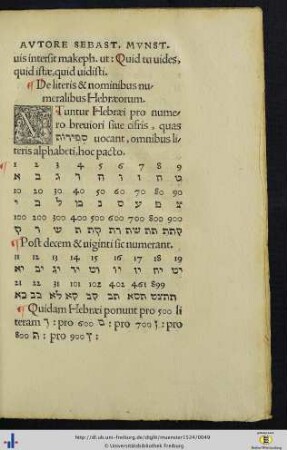 AVTORE SEBAST. MVNST.
uis intersit makeph. ut: Quid tu uides,
quid istæ, quid uidisti.
¶ De literis & nominibus nu-
meralibus Hebræorum.
NTuntur Hebræi pro nume-
ro breuiori siue cifris, quas
ספירות uocant, omnibus li-
teris alphabeti, hoc pacto.
¶ 1 2 3 4 5 6 7 8 9
ט ח ז ו ה ד ג ב א
10 20 30 40 50 60 70 80 90
צ פ ע ס נ מ ל כ י
100 200 300 400 500 600 700 800 900
תתק תת תש תר תק ת ש ר ק
¶ Post decem & uiginti sic numerant.
11 12 13 14 15 16 17 18 19
יט יח יז יו יד יג יב יא
21 22 31 101 102 461 899
תתצט תסא קב קא לא כב כא
¶ Quidam Hebræi ponunt pro 500 li
teram ך: pro 600 ם: pro 700 ן: pro
800 ף: pro 900 ץ:
http://dl.ub.uni-freiburg.de/diglit/muenster1524/0049
© Universitätsbibliothek Freiburg